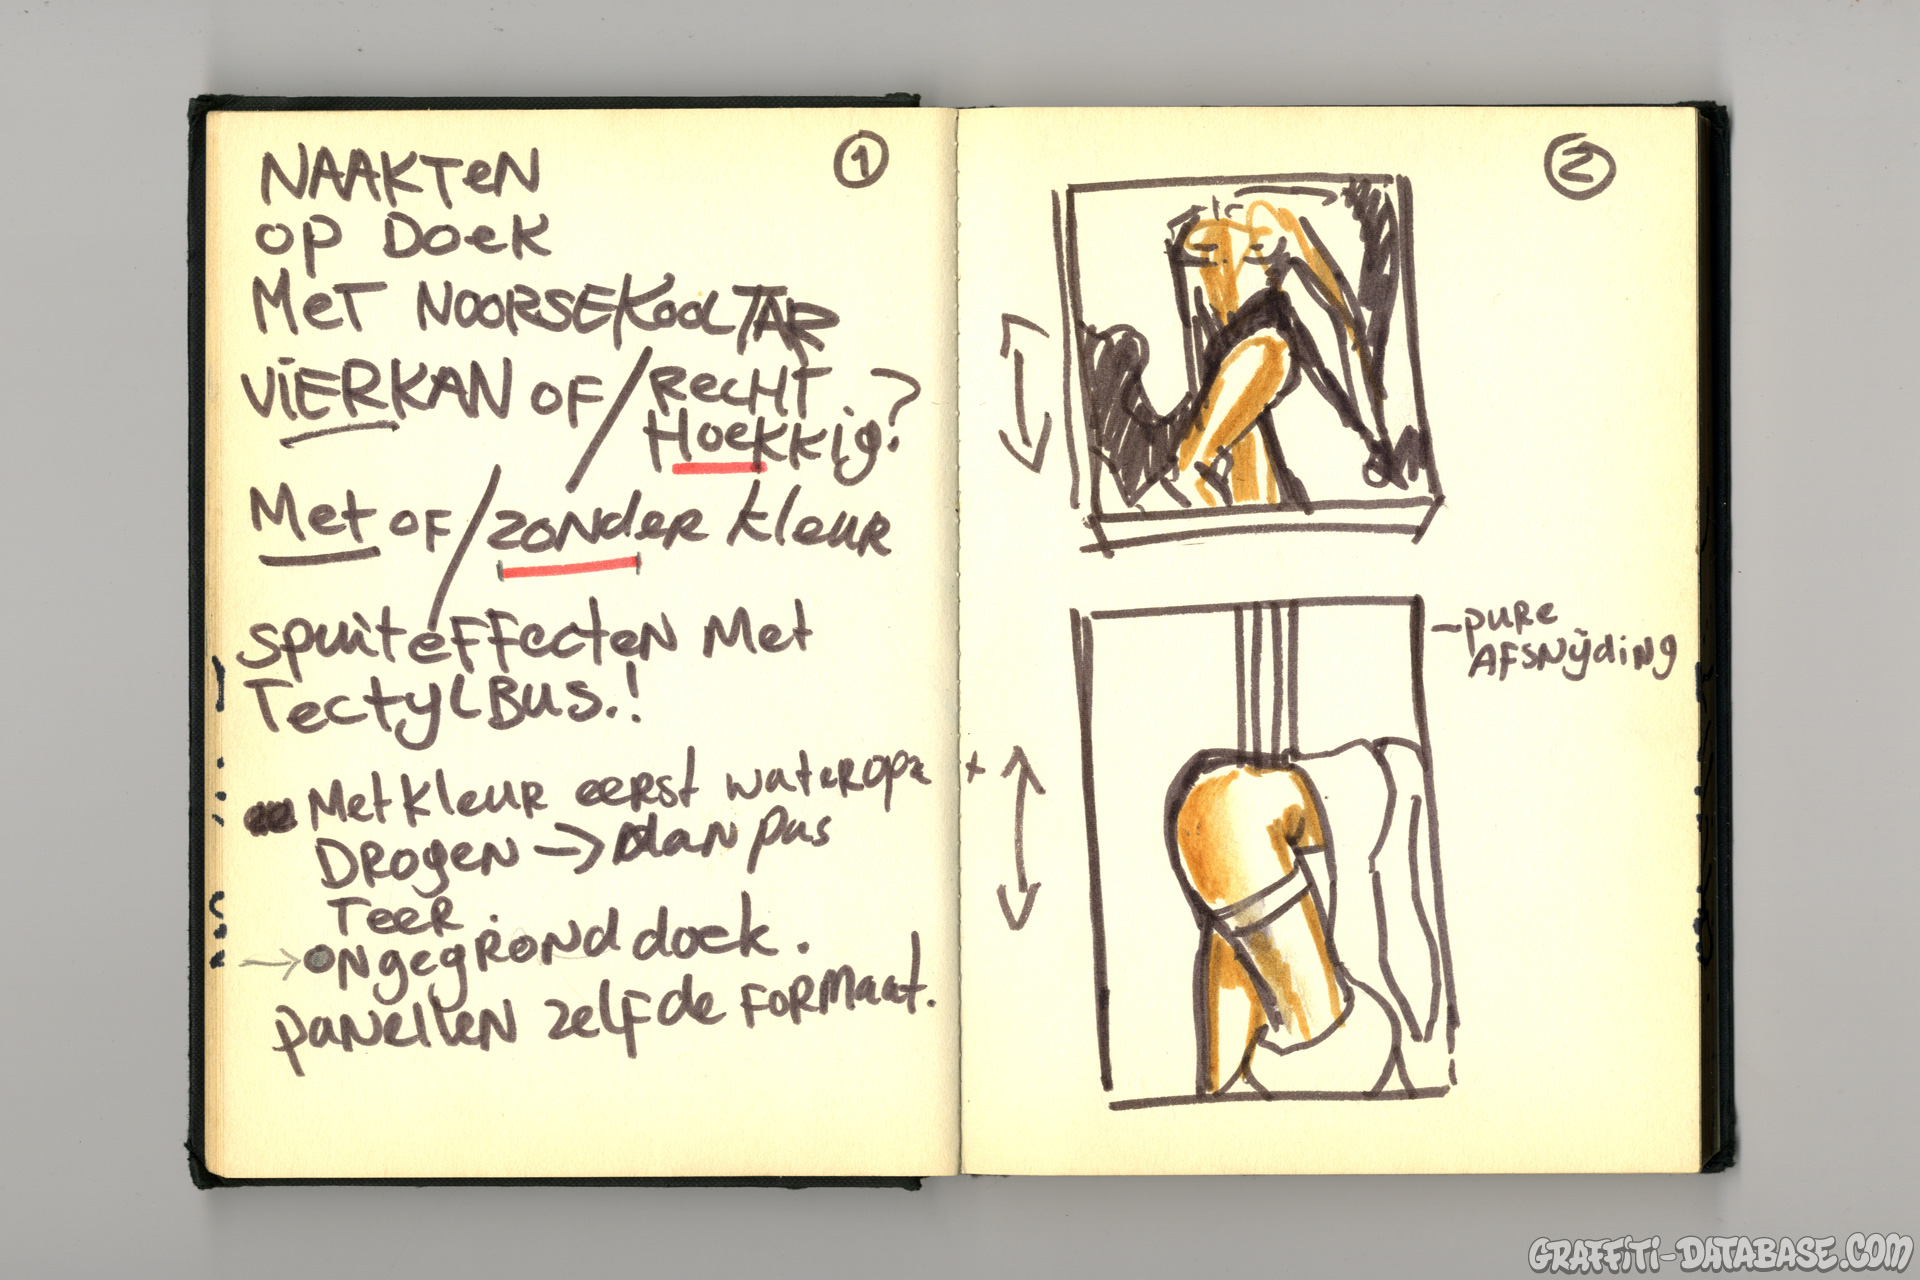 1
NAAKTEN
OP DOEK
MET NOORSEKOOLTAR
VIERKAN OF/RECHT
HOEKKIG?
Met OF/zonder kleur
spuiteffecten Met
TectylBus.!
Met kleur eerst
DROGEN → dan pas
TEER.
→ ONgegrond doek.
panellen zelfde FORMaat.
2
-pure
AFSNijding
GRAFFITI-DATABASE.COM